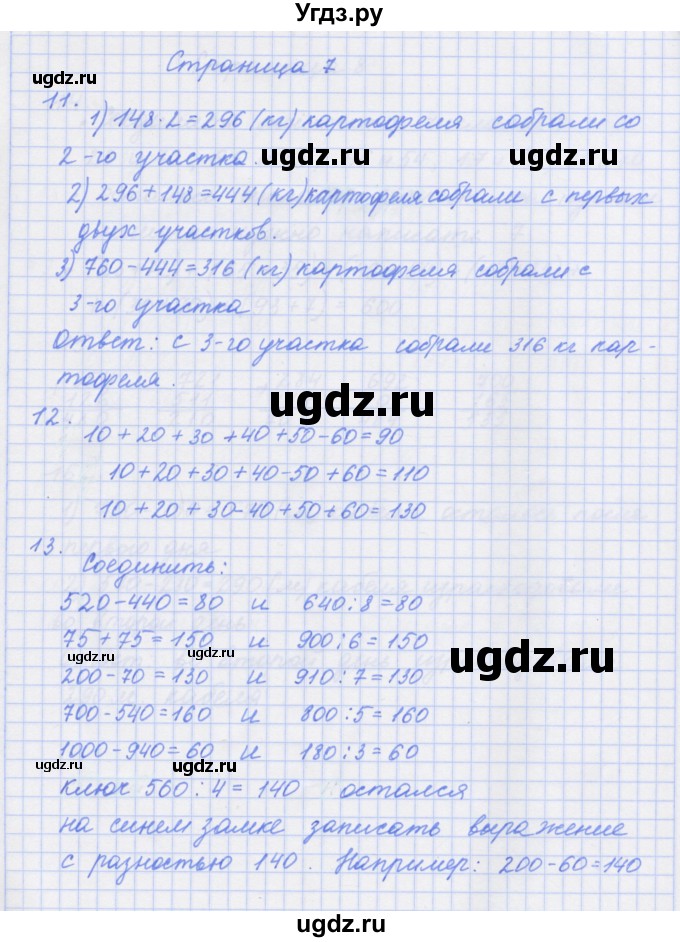 Угдз.ру
Страница 7
ugdz.ru
ugdz.ru
11.
1) 148·2=296 (кг) картофеля собрали со
2-го участка.
ugdz.ru
ugdz.ru
2) 296+148=444 (кг) картофеля собрали с первых
двух участков.
3) 760-444=316 (кг) картофеля собрали с
3-го участка
Ответ: с 3-го участка собрали 316 кг кар-
тофеля.
ugdz.ru
12.
10+20+30+40+50-60=90
10+20+30+40-50+60=110
10+20+30-40+50+60=130
13.
Соединить:
520-440=80 и 640:8=80
75+75=150 и 900:6=150
ugdz.ru
ugdz.ru
ugdz.ru
200-70=130 и 910:7=130
700-540=160 и 800:5=160
1000-940=60 и 180:3=60
ugdz.ru
ugdz.ru
Ключ 560:4=140 остался
на синем замке записать выражение
с разностью 140. Например: 200-60=140
ugdz.ru
ugdz.ru